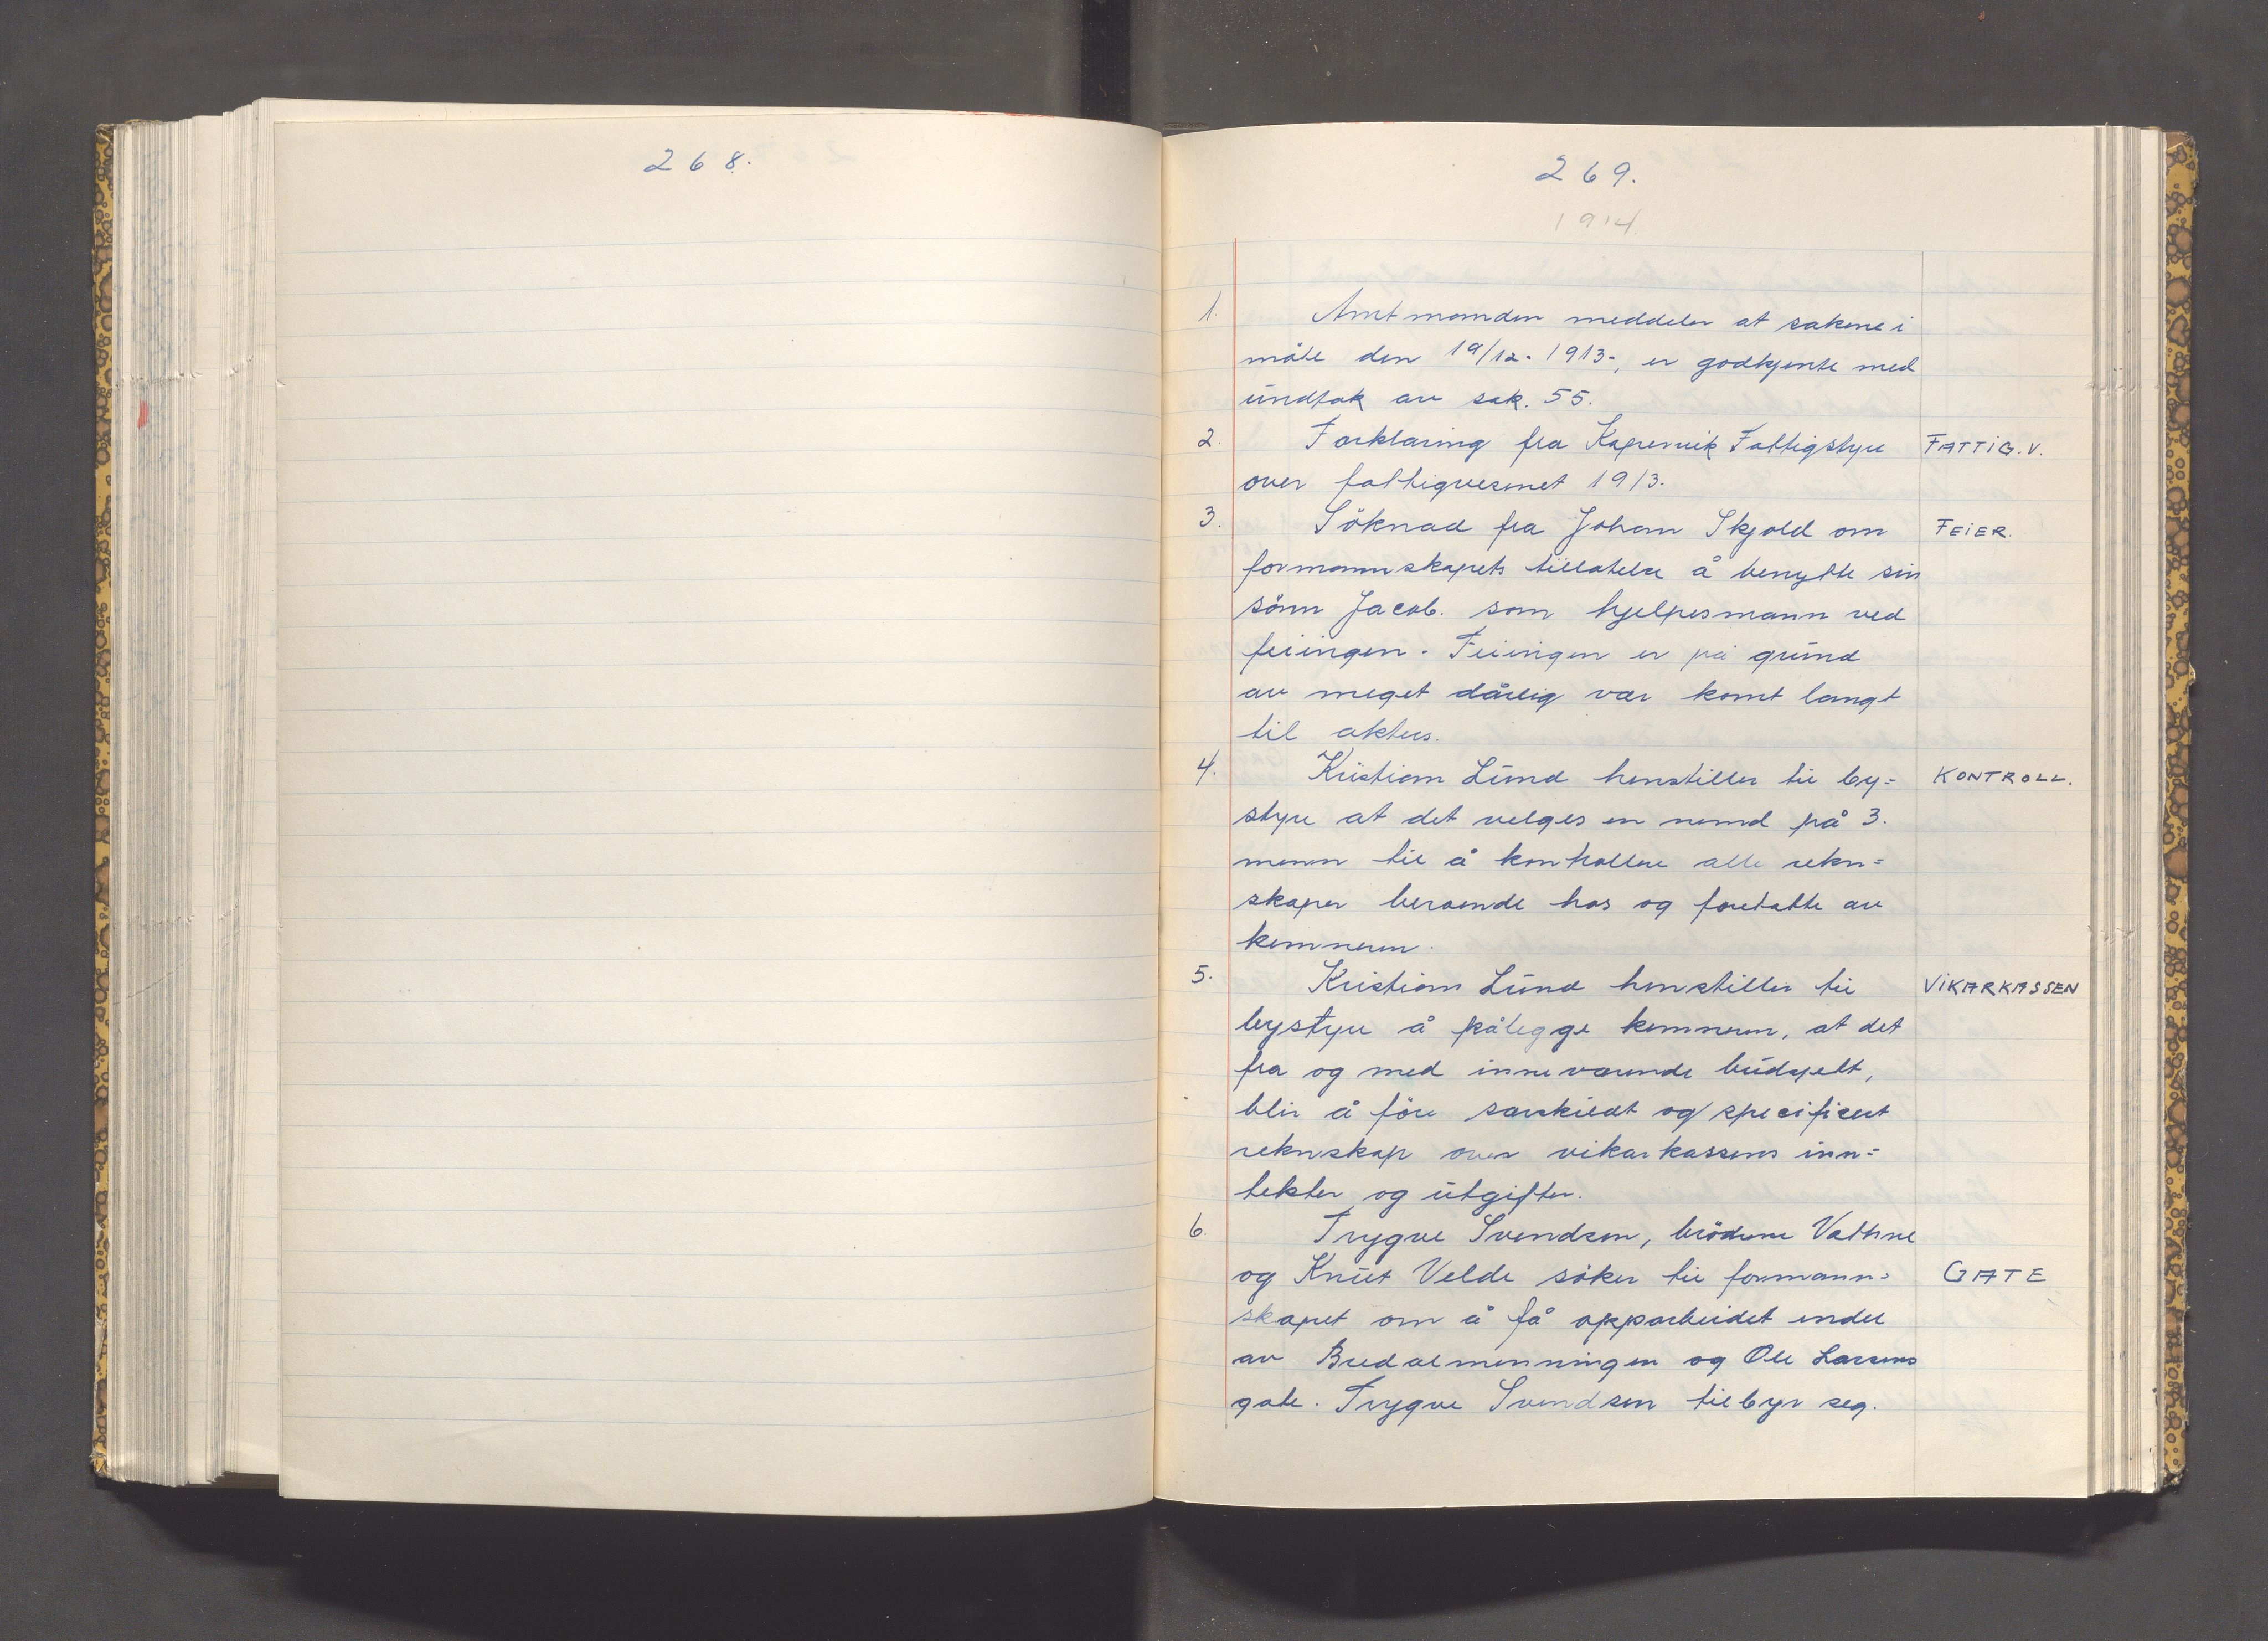 268.
269.
1914
1. Amtmanden meddeler at sakene i
møte den 19/12-1913-, er godkjente med
undtak av sak. 55.
2. Forklaring fra Kopervik Fattigstyre FATTIG.V.
over fattigvesenet 1913.
3. Söknad fra Johan Skjold om FEIER.
formannskapets tillatelse å benytte sin
sönn Jacob. som hjelpesmann ved
feiingen. Feiingen er på grund
av meget dårlig vær komt langt
til akters.
4. Kristian Lund henstiller til by= KONTROLL.
styre at det velges en nemd på 3.
menn til å kontrollere alle rekn=
skaper beroende hos og foretatte av
kemneren.
5. Kristian Lund henstiller til VIKARKASSEN
bystyre å pålegge kemneren, at det
fra og med inneværende budgett,
blir å före særskildt og specificert
reknskap over vikarkassens inn=
tekter og utgifter.
6. Trygve Svendsen, brödrene Vathne
og Knut Velde söker til formann= GATE
skapet om å få opparbeidet endel
av Bredalmenningen og Ole Larsens
gate. Trygve Svendsen tilbyr seg.